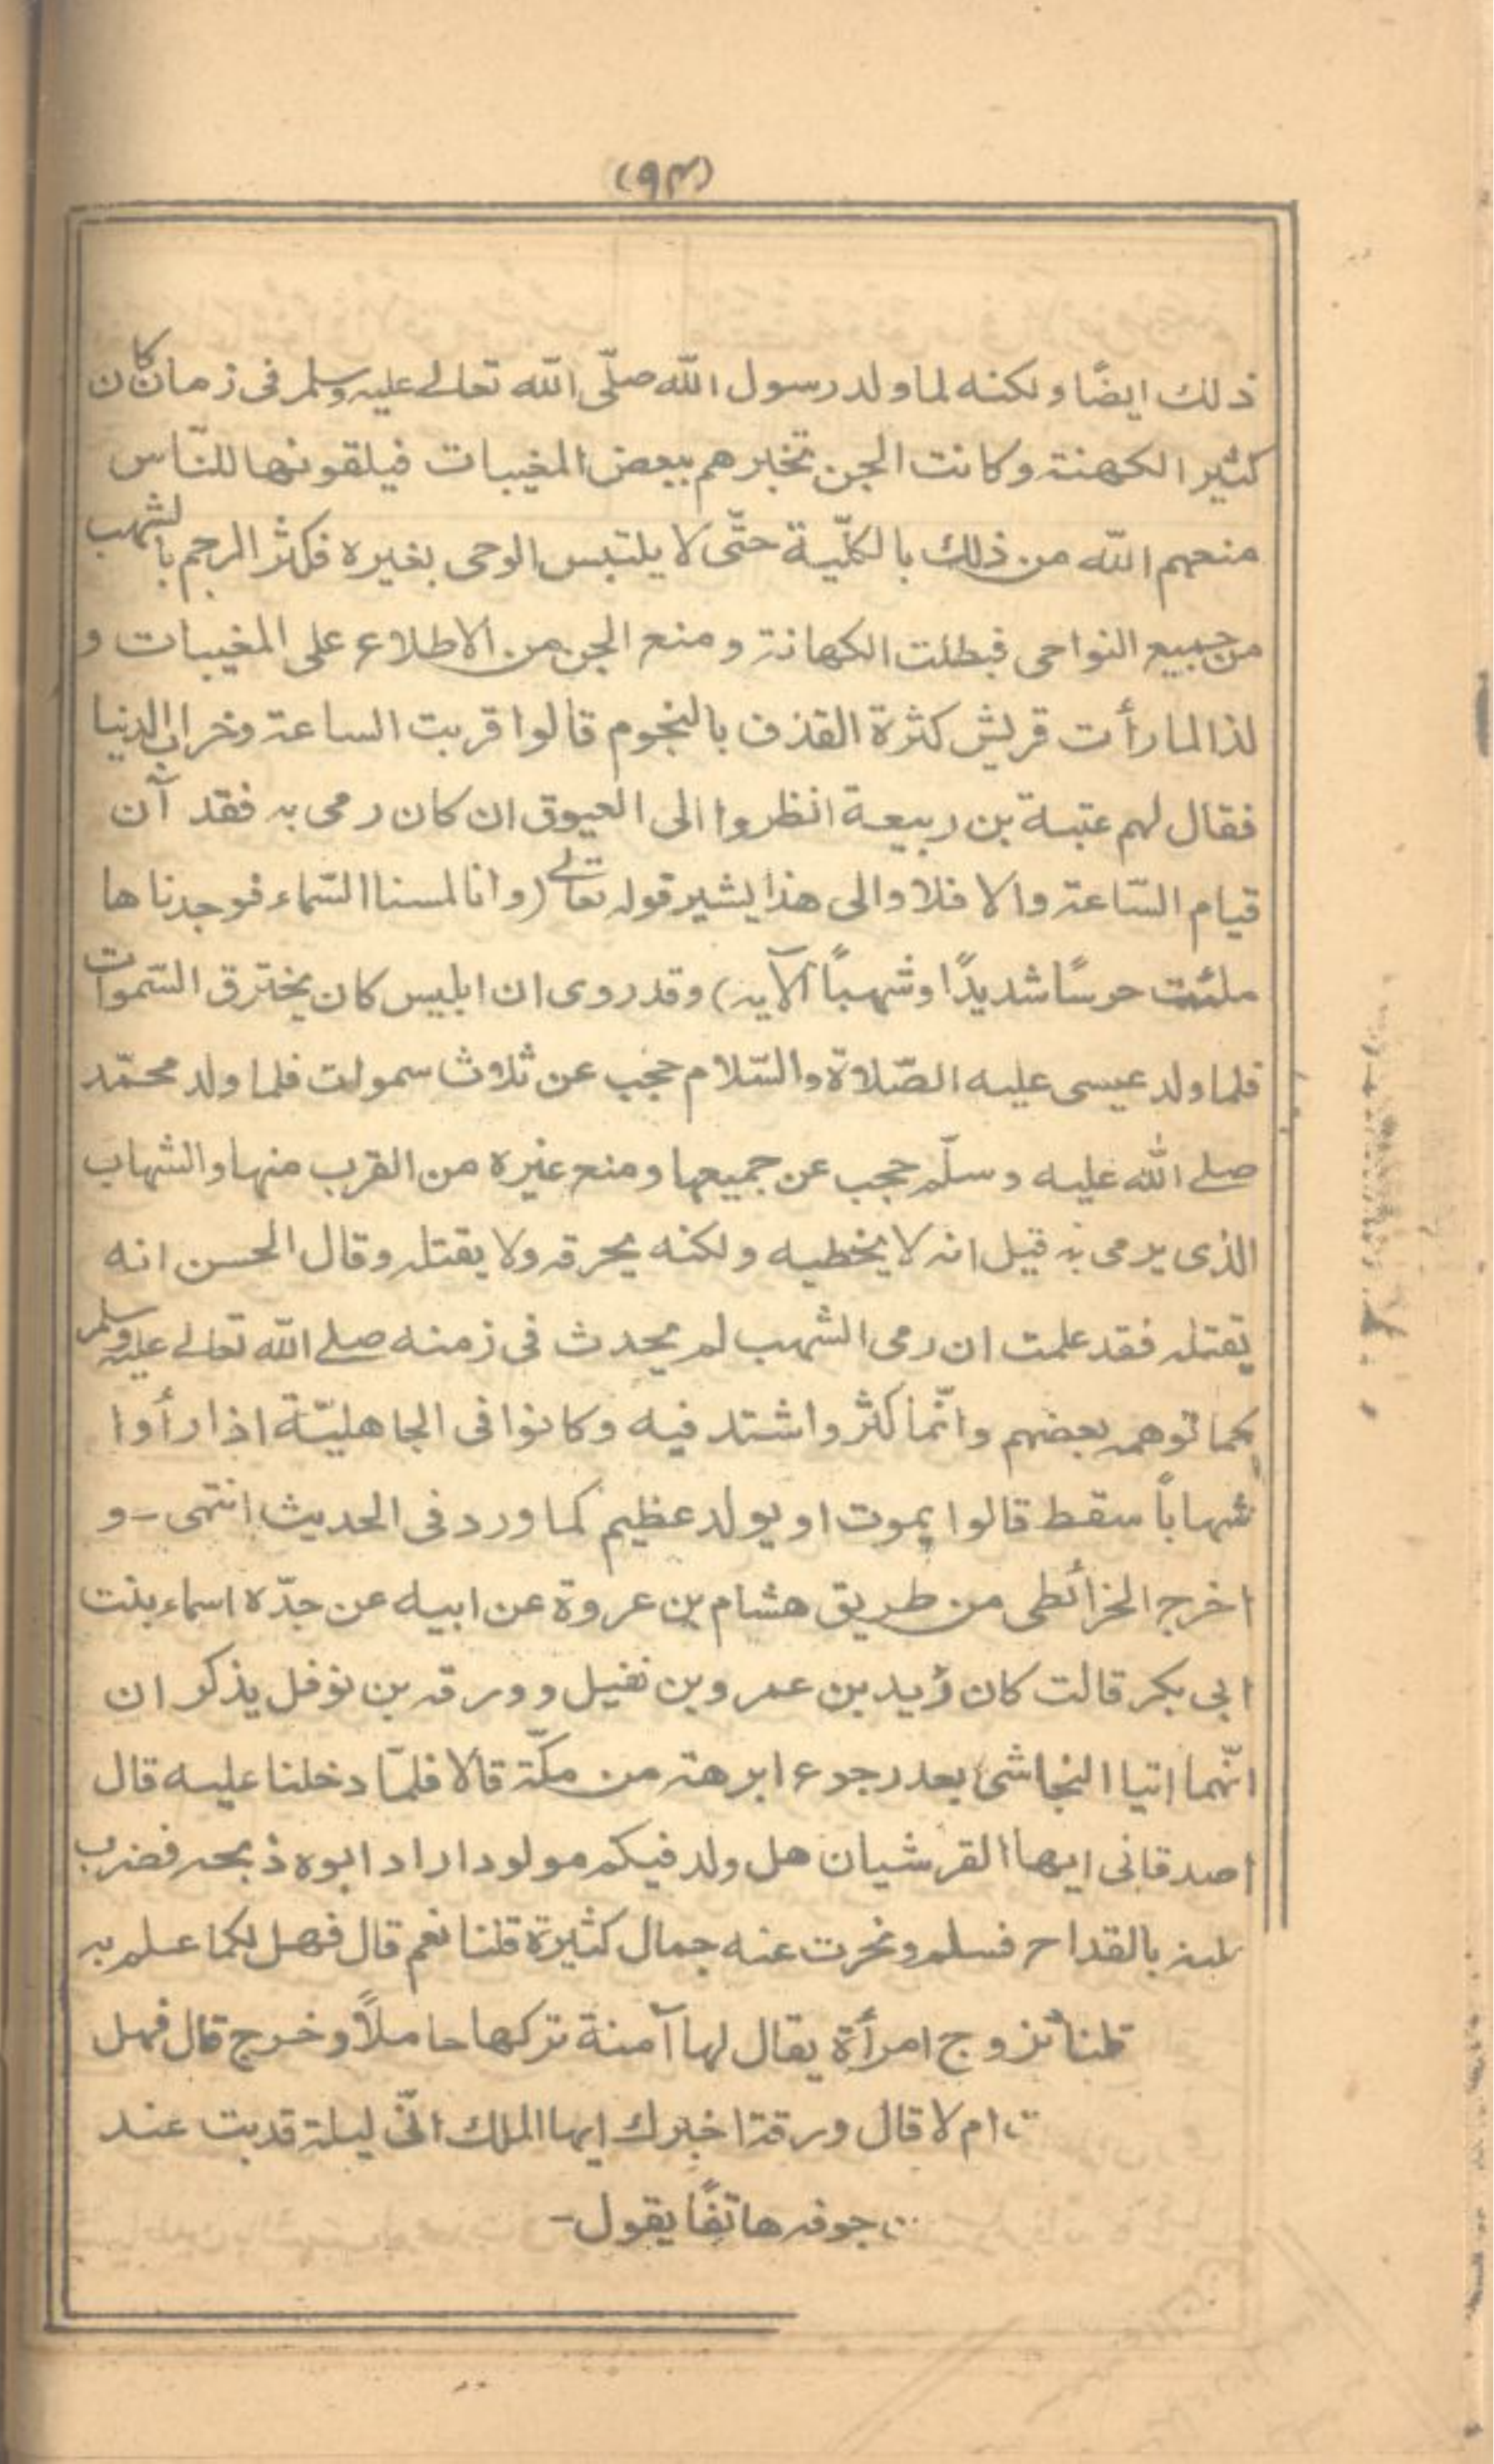 (۹۳)
ذلك ايضًا ولكنه لما ولد رسول الله صلّى الله تعالے عليه وسلم فى زمان كان
كثير الكهنة وكانت الجن تخبرهم ببعض المغيبات فيلقونها للنّاس
منعهم الله من ذلك بالكلّية حتّى لا يلتبس الوحى بغيره فكثر الرجم بالشهب
من جميع النواحى فبطلت الكهانة ومنع الجن من الاطلاع على المغيبات و
لذا لما رأت قريش كثرة القذف بالنجوم قالوا قربت الساعة وخراب الدنيا
فقال لهم عتبة بن ربيعة انظروا الى العيوق ان كان رمى به فقد آن
قيام السّاعة والا فلا والى هذا يشير قوله تعالے (وانا لمسنا السّماء فوجدناها
ملئت حرسًا شديدًا وشهبًا الآيه) وقد روى ان ابليس كان يخترق السّموات
فلما ولد عيسى عليه الصّلاة والسّلام حجب عن ثلاث سموات فلما ولد محمّد
صلے الله عليه وسلّم حجب عن جميعها ومنع غيره من القرب منها والشهاب
الذى يرمى به قيل انه لا يخطيه ولكنه يحرقه ولا يقتله وقال الحسن انه
يقتله فقد علمت ان رمى الشهب لم يحدث فى زمنه صلے الله تعالے عليه وسلم
كما توهمه بعضهم وانّما كثر واشتد فيه وكانوا فى الجاهليّة اذا رأوا
شهابًا سقط قالوا يموت او يولد عظيم كما ورد فى الحديث انتهى - و
اخرج الخرائطى من طريق هشام بن عروة عن ابيه عن جدّه اسماء بنت
ابى بكر قالت كان زيد بن عمرو بن نفيل وورقه بن نوفل يذكر ان
انّهما اتيا النجاشى بعد رجوع ابرهة من مكّة قالا فلمّا دخلنا عليه قال
اصدقانى ايها القرشيان هل ولد فيكم مولود اراد ابوه ذبحه فضرب
بالقداح فسلم ونحرت عنه جمال كثيرة قلنا نعم قال فهل لكما علم به
قلنا تزوج امرأة يقال لها آمنة تركها حاملاً وخرج قال فهل
ام لا قال ورقة اخبرك ايها الملك انّى ليلة قد بت عند
جوفه هاتفًا يقول-